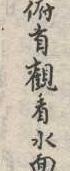 俯首觀看水面